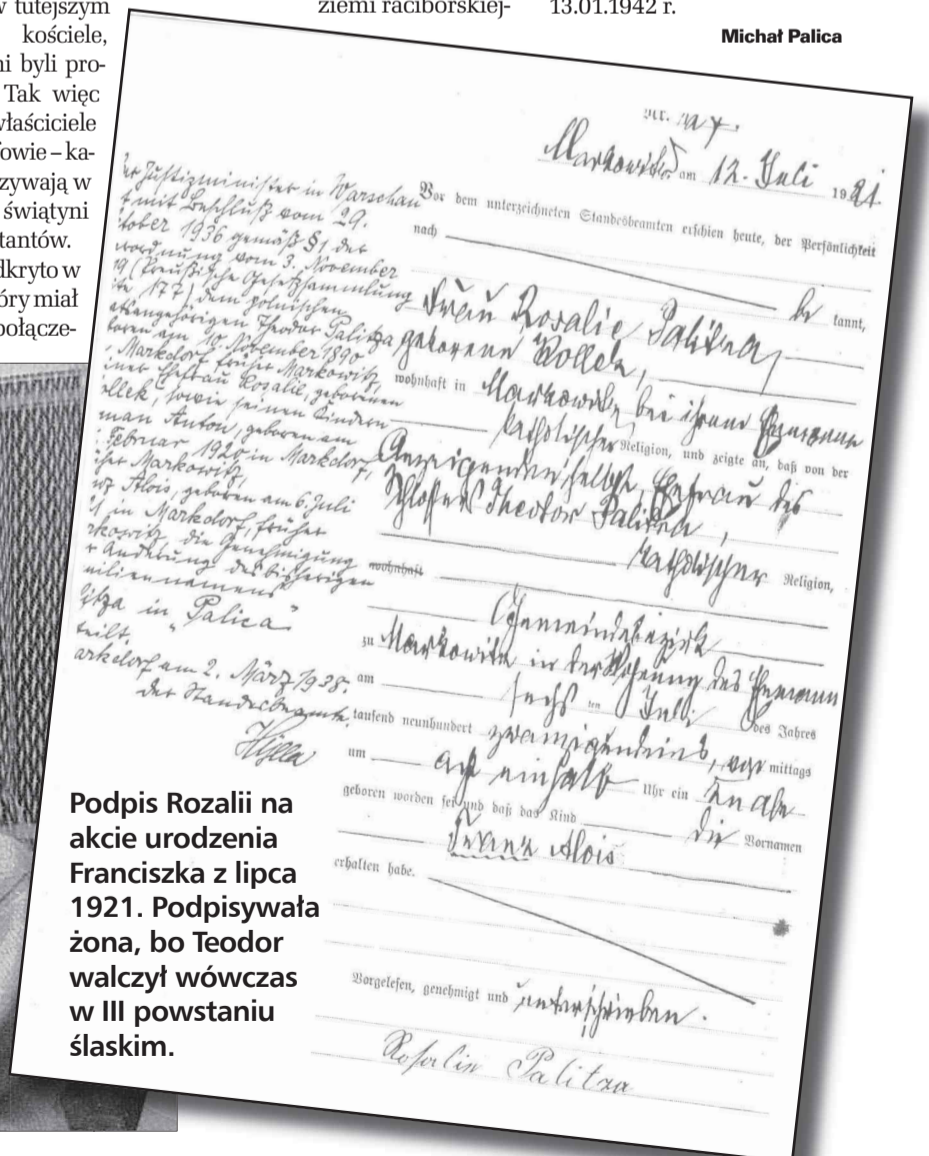 w tutejszym
kościele,
ni byli pro-
Tak więc
właściciele
owie – ka-
zywają w
świątyni
tantów.
dkryto w
óry miał
połącze-
ziemi raciborskiej-
13.01.1942 r.
Michał Palica
Nr.
Markowitz am 12. Juli 1921.
Vor dem unterzeichneten Standesbeamten erschien heute, der Persönlichkeit
nach
be kannt,
Frau Rosalie Palitza,
geborene
wohnhaft in Markowitz bei ihrem Ehemanne
katholischer Religion, und zeigte an, daß von der
Anzeigenden selbst, Ehefrau des
Schlossers Theodor Palitza,
katholischer Religion,
wohnhaft
Gemeindebezirk
zu Markowitz in der Wohnung des Ehemann
am sechs ten Juli des Jahres
tausend neunhundert zwanzigundeins, vor mittags
um acht einhalb Uhr ein Knabe
geboren worden sei und daß das Kind die Vornamen
Franz Alois
erhalten habe.
Vorgelesen, genehmigt und unterschrieben.
Rosalie Palitza
er Justizminister in Warschau
t mit Beschluß vom 29.
tober 1936 gemäß § 1 der
erordnung vom 3. November
19 (Preußische Gesetzsammlung
ite 177) dem polnischen
atsangehörigen Theodor Palitza
boren am 10. November 1890
Markdorf, früher Markowitz,
iner Ehefrau Rosalie, geborenen
ollek, sowie seinen Kindern
man Anton, geboren am
Februar 1920 in Markdorf,
üher Markowitz,
nz Alois, geboren am 6. Juli
1 in Markdorf, früher
rkowitz, die Genehmigung
r Änderung des bisherigen
miliennamens
litza in "Palica"
teilt.
arkdorf am 2. März 1938.
der Standesbeamte.
Podpis Rozalii na
akcie urodzenia
Franciszka z lipca
1921. Podpisywała
żona, bo Teodor
walczył wówczas
w III powstaniu
ślaskim.